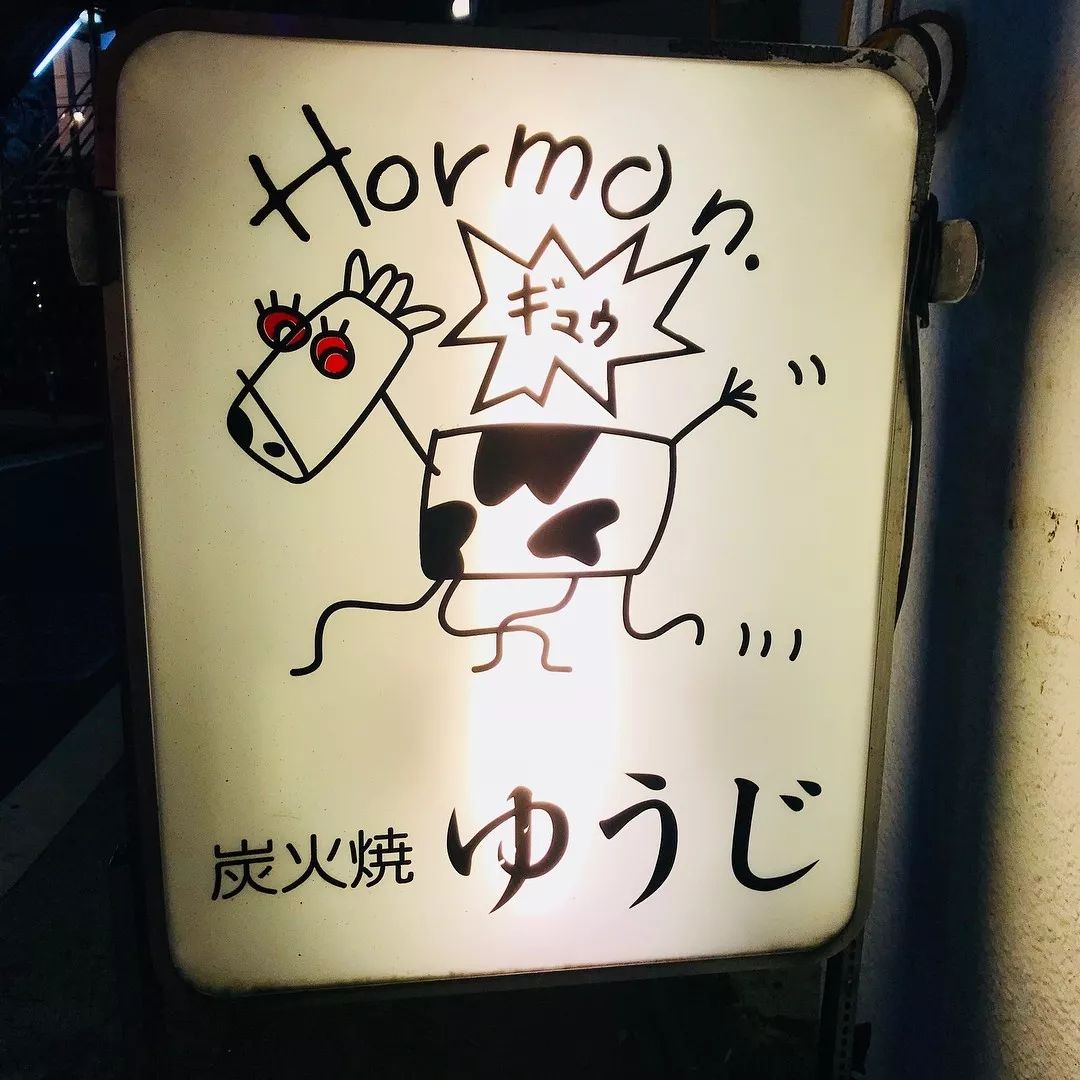 Hormon.
ギマゥ
炭火焼 ゆうじ